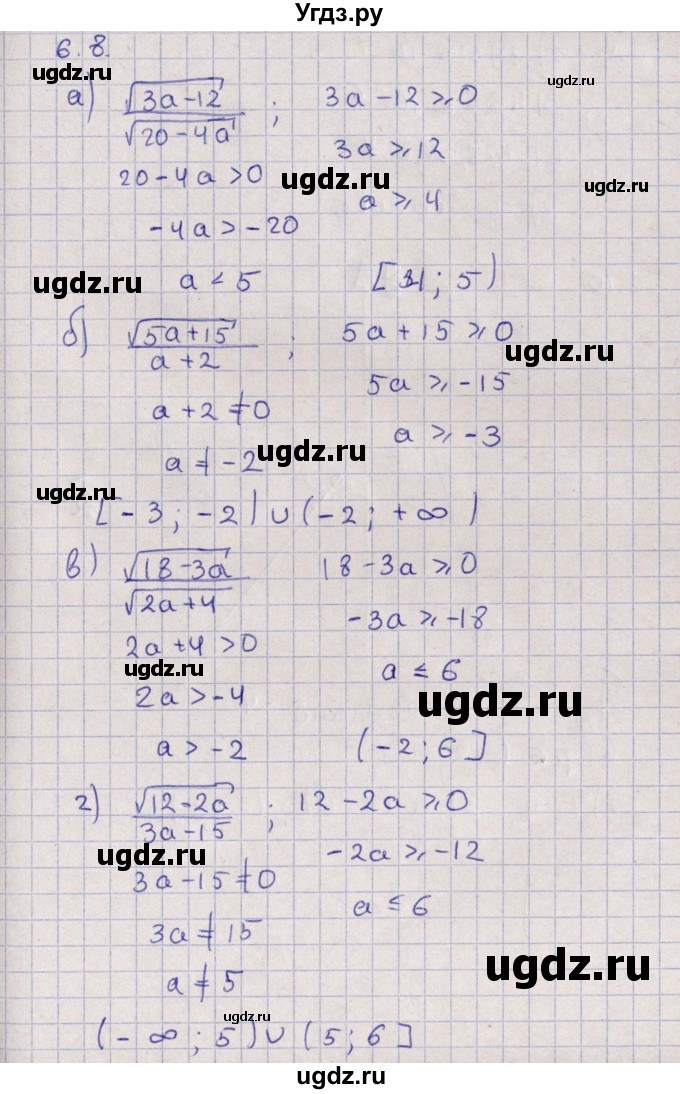 Угдз.ру
6.8.
ugdz.ru
ugdz.ru
а) √(3a-12) / √(20-4a) ; 3a-12 ⩾ 0
3a ⩾ 12
20-4a > 0
ugdz.ru
ugdz.ru
a ⩾ 4
-4a > -20
ugdz.ru
a < 5
[4; 5)
б) √(5a+15) / a+2 ; 5a+15 ⩾ 0
ugdz.ru
5a ⩾ -15
a+2 ≠ 0
a ⩾ -3
a ≠ -2
ugdz.ru
ugdz.ru
[-3; -2) ∪ (-2; +∞)
в) √(18-3a) / √(2a+4) 18-3a ⩾ 0
-3a ⩾ -18
2a+4 > 0
ugdz.ru
a ≤ 6
2a > -4
ugdz.ru
a > -2
(-2; 6]
г) √(12-2a) / 3a-15 ; 12-2a ⩾ 0
ugdz.ru
-2a ⩾ -12
3a-15 ≠ 0
a ≤ 6
3a ≠ 15
ugdz.ru
a ≠ 5
ugdz.ru
(-∞; 5) ∪ (5; 6]
ugdz.ru